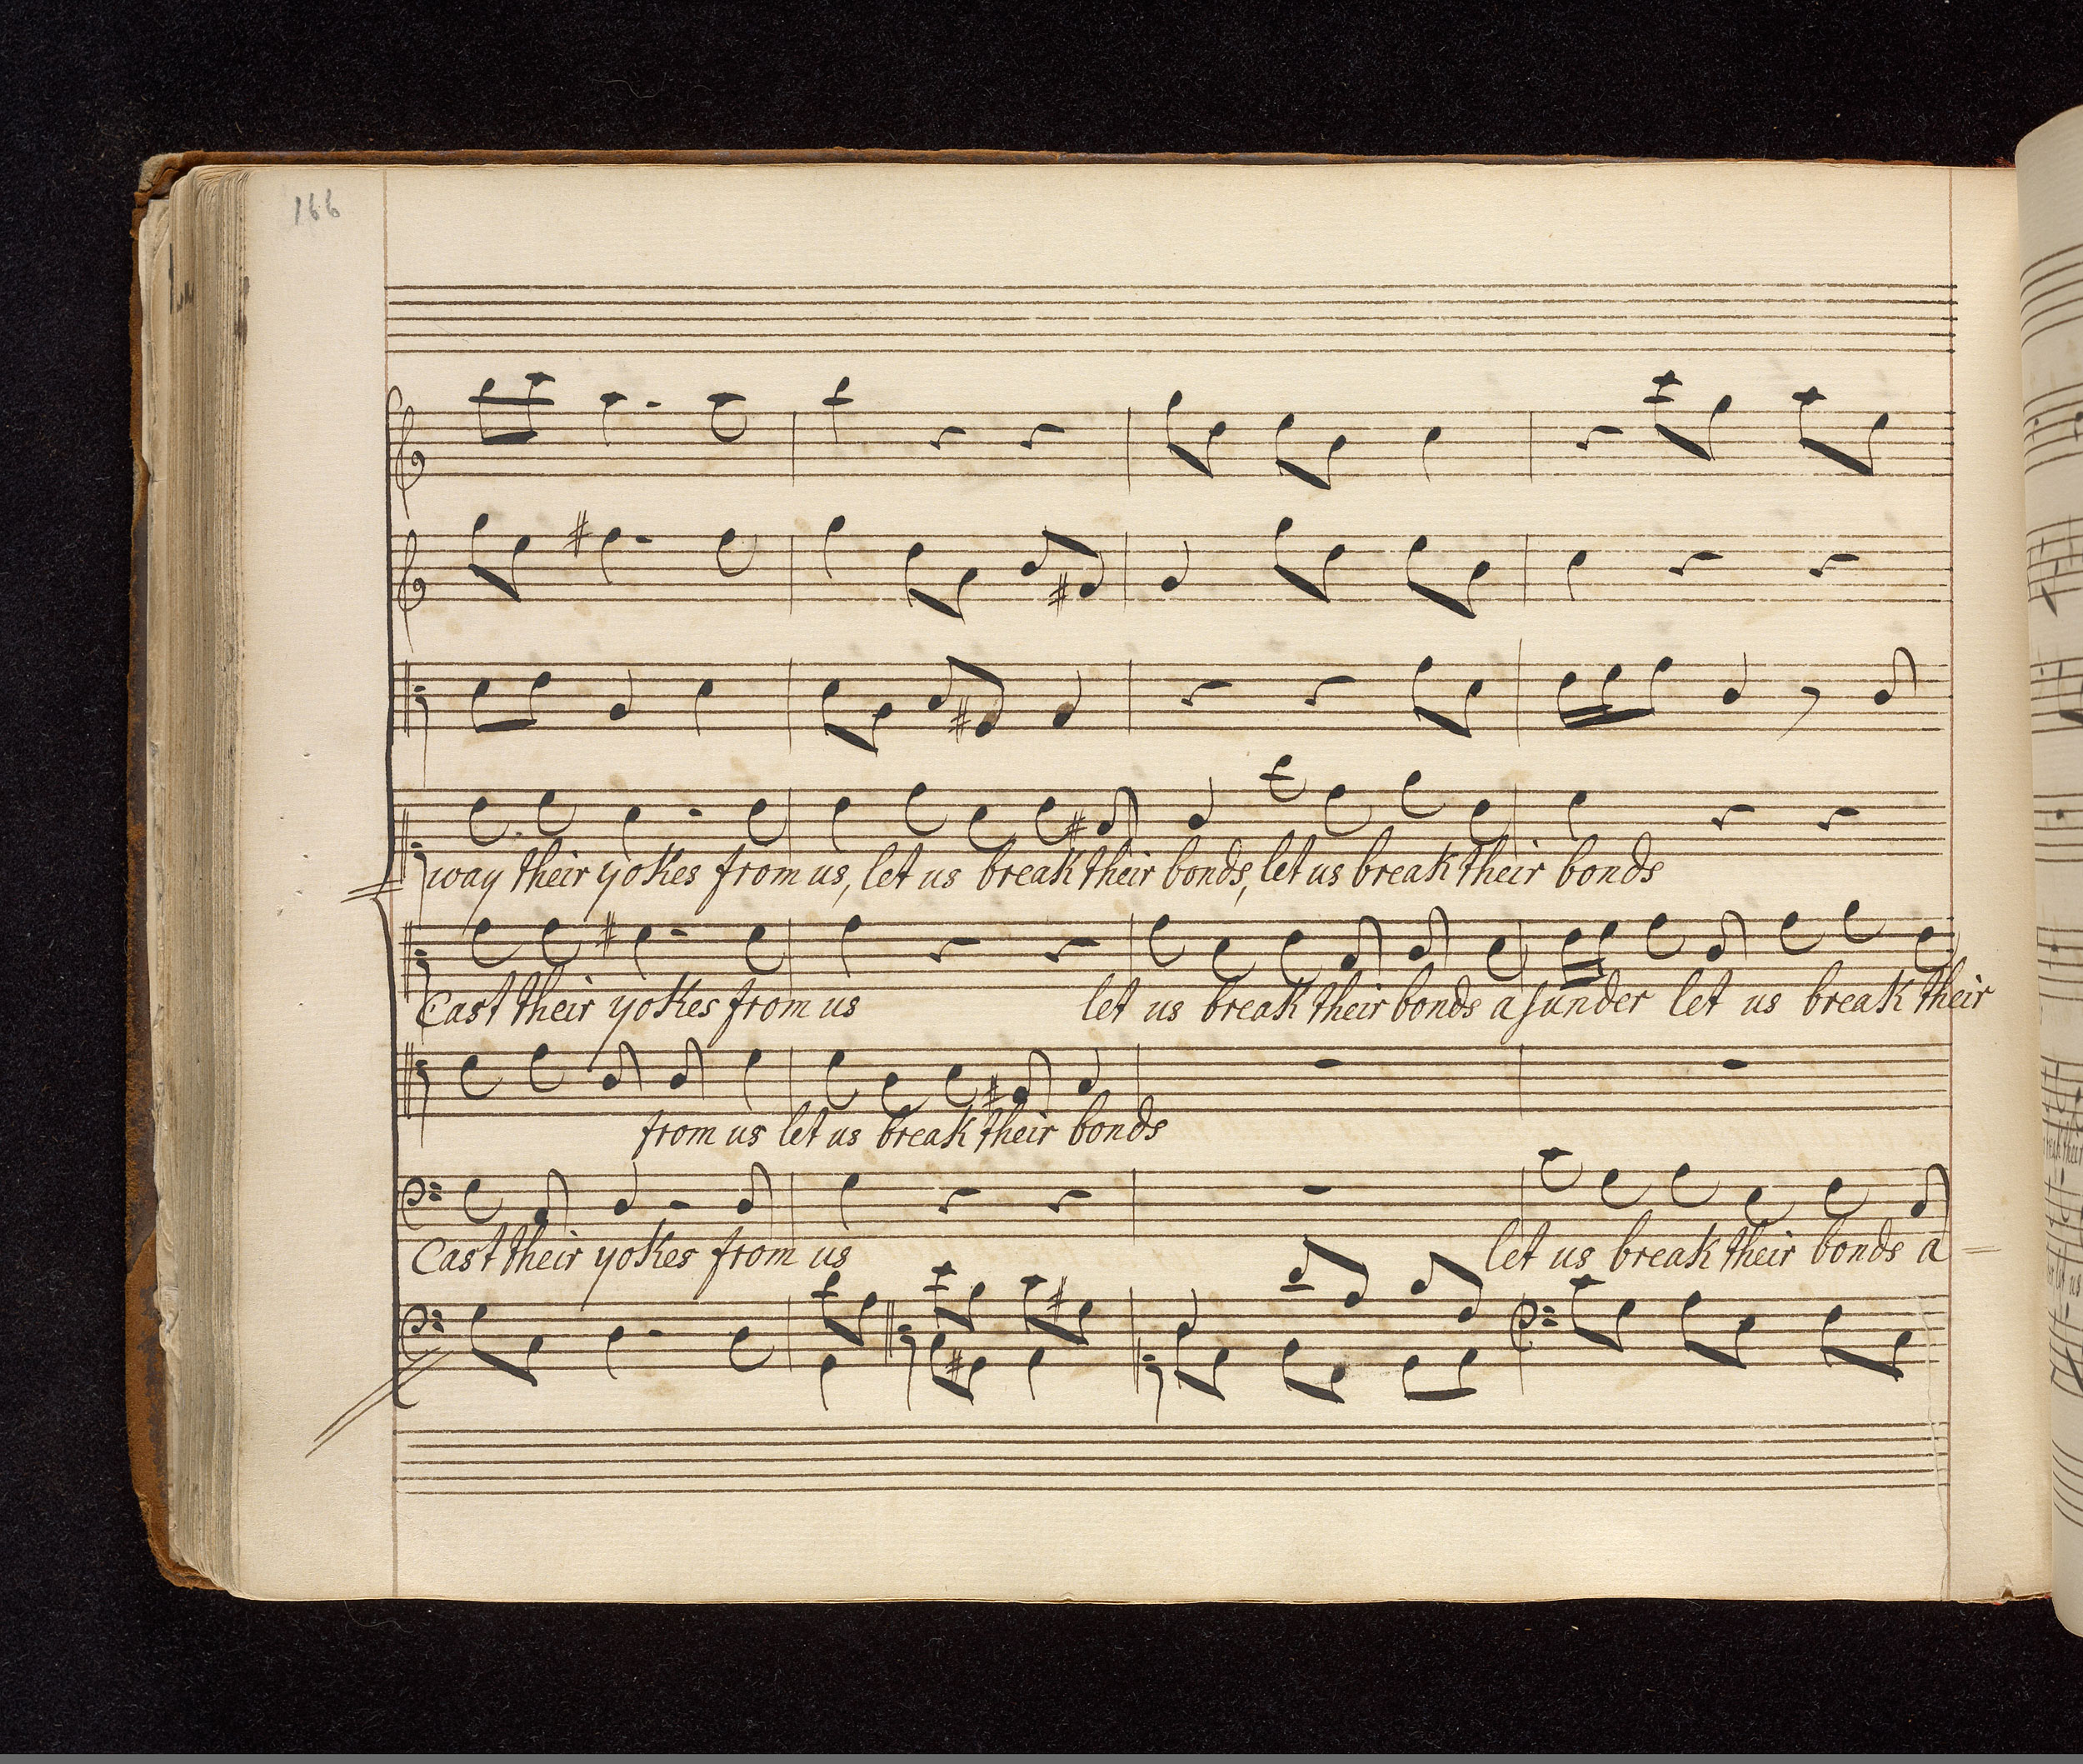 166
way their yokes from us, let us break their bonds, let us break their bonds
Cast their yokes from us let us break their bonds asunder let us break their
from us let us break their bonds
Cast their yokes from us let us break their bonds a=